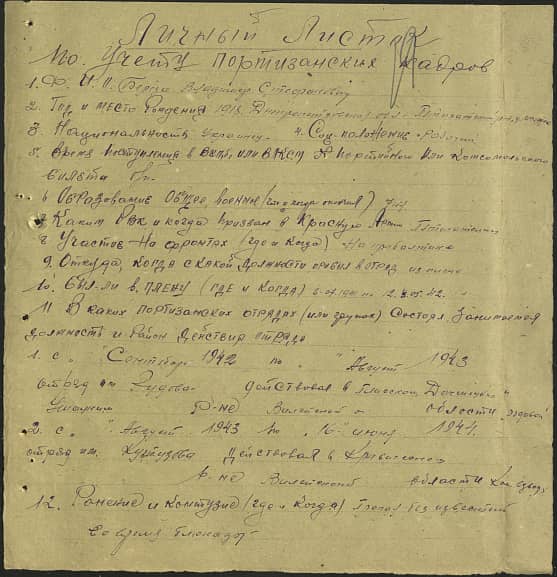 Личный Листок
По Учету портизанских кадров
1. Ф. И. О. Владимир Стефанович
2. Год и место Рождения 1918
3. Национальность Украинец 4. Соц-положение Рабочий
5. Время поступления в ВКПб, или ВЛКСМ № портийного Или комсомольского
билета
6 Образование Общее, военное (что и когда окончил) 7 кл
7 Каким РВК и когда призван в Красную Армию
8 Участие На фронтах (где и когда) На прибалтике
9. Откуда, когда с какой должности прибыл в отряд из плена
10. был ли в плену (где и когда)
11 В каких портизанских отрядах (или групах) Состоял Занимаемая
должность и район действия отряда
1. с " Сентябрь 1942 по " Август 1943
отряд им действовал в
р-не Вилейской области
2. с " Август 1943 по "16" июня 1944
отряд им. Кутузова действовал в
р-не Вилейской области
12. Ранение и Контузие (где и когда) Пропал без известий
во время блокады